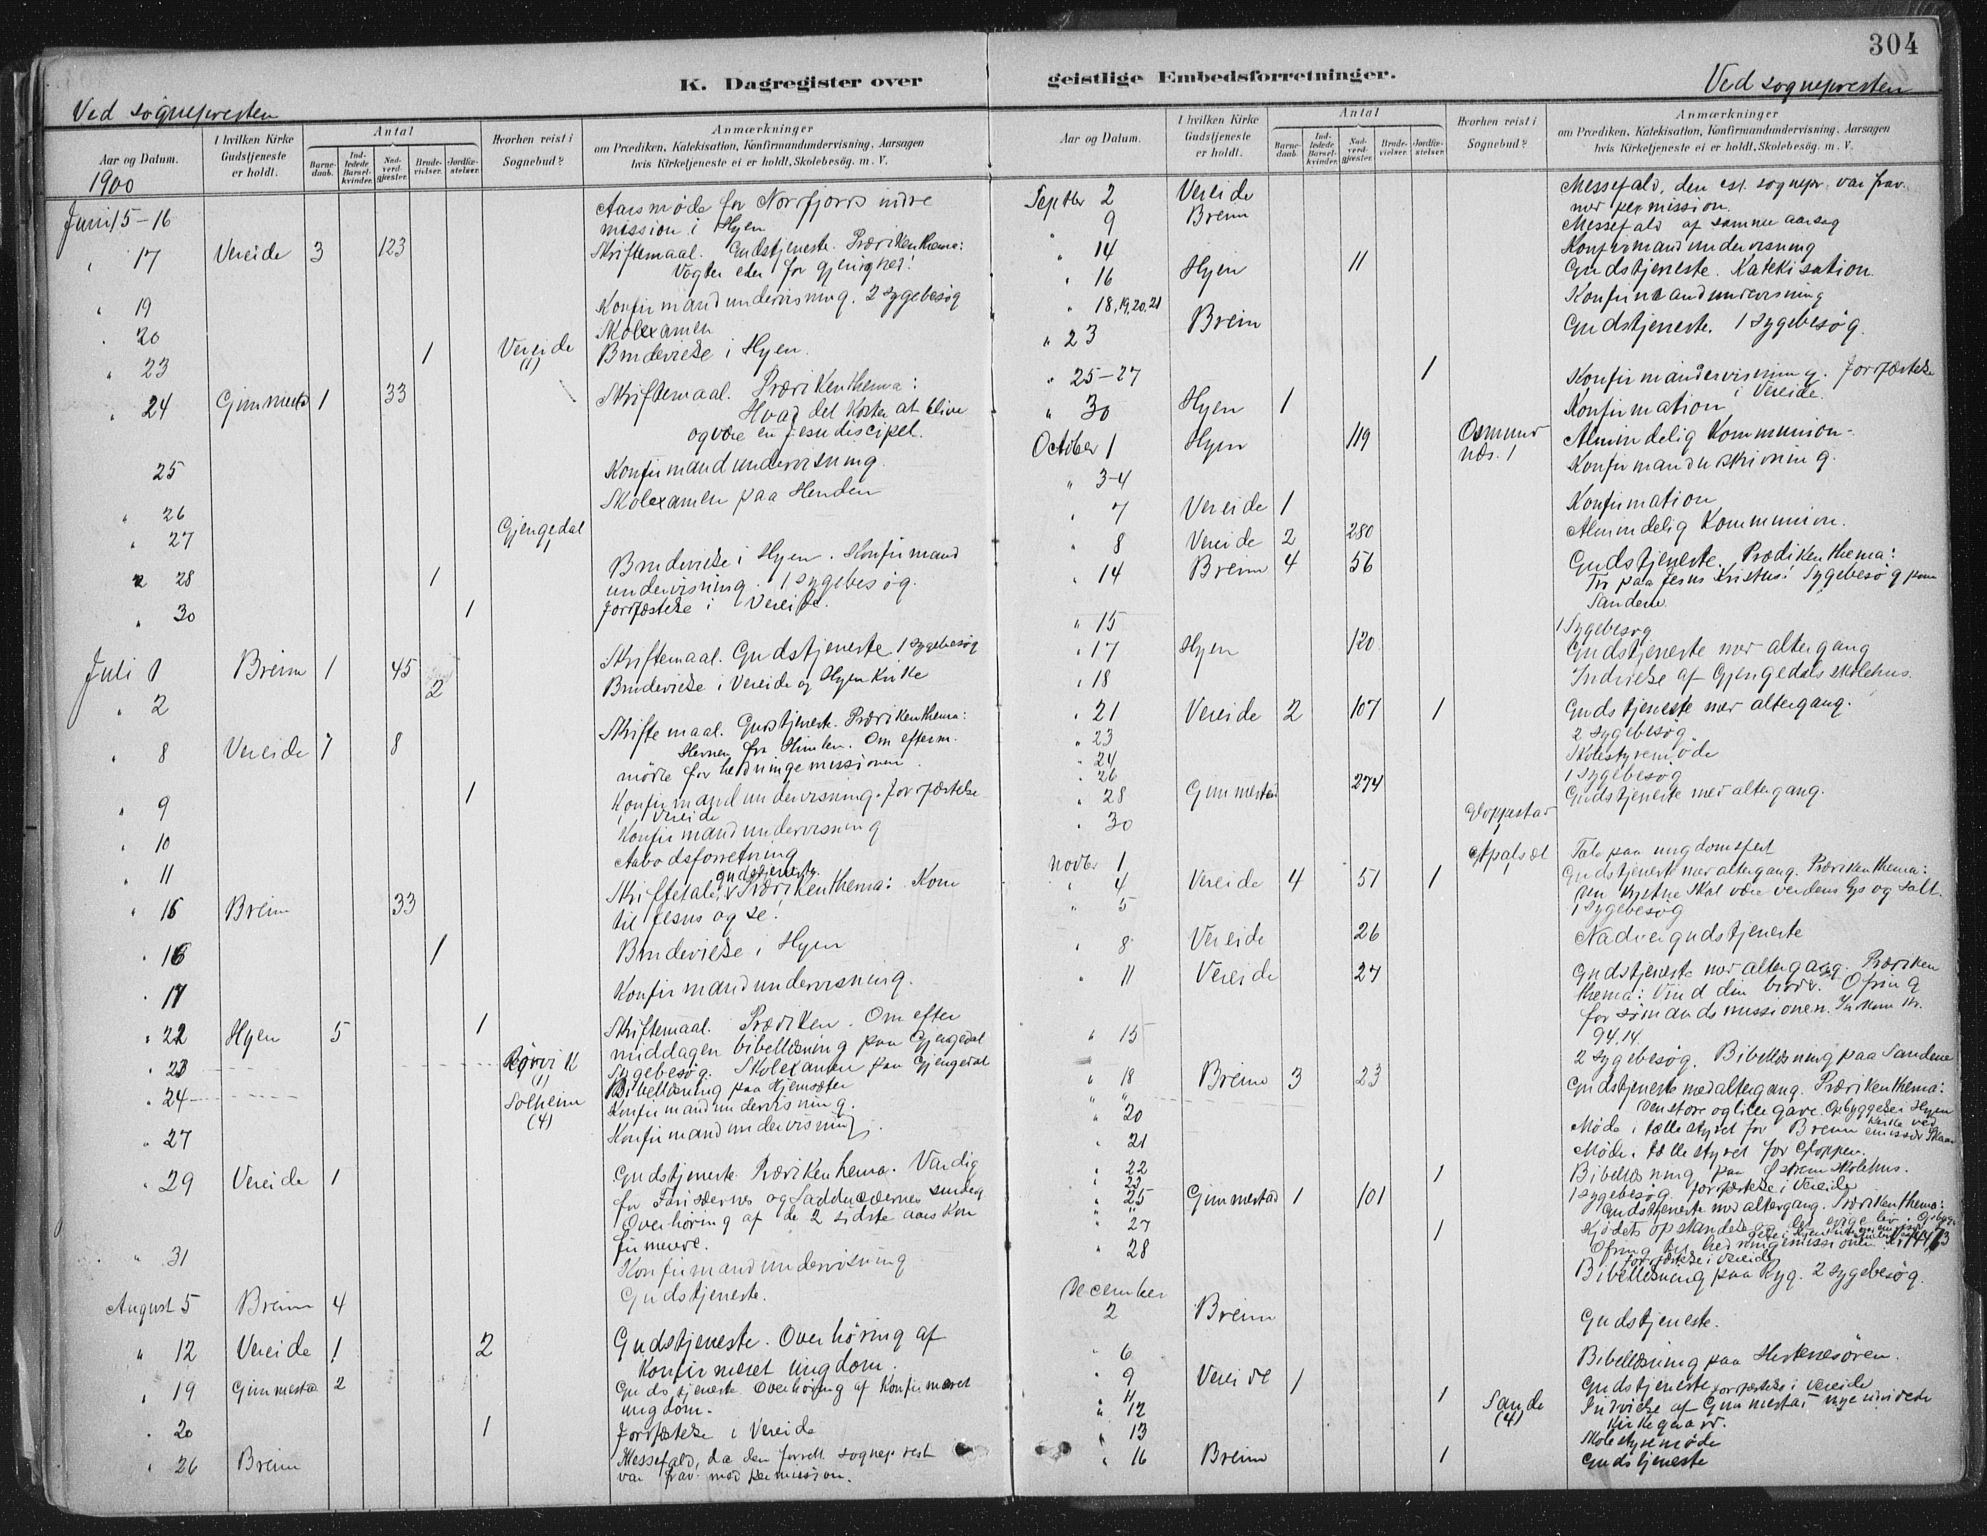 304
K. Dagregister over geistlige Embedsforretninger.
Ved sognepresten
Aar og Datum.
I hvilken Kirke Gudstjeneste er holdt.
Antal
Barnedaab.
Indledede Barselkvinder.
Nadverdgjæster.
Brudevielser.
Jordfæstelser.
Hvorhen reist i Sognebud?
Anmærkninger
om Prædiken, Katekisation, Konfirmandundervisning, Aarsagen
hvis Kirketjeneste ei er holdt, Skolebesøg. m. V.
1900
Juni 15-16 Aarsmøde for Nordfjords indre
mission i Hyen
" 17 Vereide 3 123 Skriftemaal. Gudstjeneste. Prædikenthema:
Vogter eder for gjerighed!
" 19 Konfirmandundervisning. 2 sygebesøg
" 20 Skolexamen
" 23 1 Vereide (1) Brudevielse i Hyen.
" 24 Gimmestad 1 33 Skriftemaal. Prædikenthema:
Hvad det koster at blive
og være en Jesu discipel.
25 Konfirmandundervisning.
" 26 Skolexamen paa Henden
" 27 Gjengedal 1
" 28 1 Brudevielse i Hyen. Konfirmand
undervisning. 1 sygebesøg.
" 30 1 Jordfæstelse i Vereide.
Juli 1 Breim 1 45 Skriftemaal. Gudstjeneste 1 sygebesøg
" 2 2 Brudevielse i Vereide og Hyen Kirke
" 8 Vereide 7 8 Skriftemaal. Gudstjeneste. Prædikenthema:
for Himlen. Om efterm.
møde for hedningemissionen.
" 9 1 Konfirmandundervisning. Jordfæstelse
i Vereide
" 10 Konfirmandundervisning
" 11 Aabodsforretning
" 15 Breim 33 Skriftetale, gudstjeneste. Prædikenthema: Kom
til Jesus og se!
" 16 1 Brudevielse i Hyen
" 17 Konfirmandundervisning.
" 22 Hyen 5 1 Skriftemaal. Prædiken. Om efter
middagen bibellæsning paa Gjengedal
" 23 Rørvik (1) Sygebesøg. Skolexamen paa Gjengedal
" 24 Solheim (4) Bibellæsning paa Hjemsæter
Konfirmandundervisning.
" 27 Konfirmandundervisning.
" 29 Vereide 1 Gudstjeneste. Prædikenthema. Vandig
for Farisæernes og Sadducæernes surdeig
Overhøring af de 2 sidste aars Kon
firmerede.
" 31 Konfirmandundervisning
August 5 Breim 4 Gudstjeneste.
" 12 Vereide 1 2 Gudstjeneste. Overhøring af
Konfirmeret ungdom.
" 19 Gimmestad 2 Gudstjeneste. Overhøring af Konfirmeret
ungdom.
" 20 1 Jordfæstelse i Vereide
" 26 Breim Messefald, da den forrett. sogneprest
var frav. med permission.
Ved sognepresten
Aar og Datum.
I hvilken Kirke Gudstjeneste er holdt.
Antal
Barnedaab.
Indledede Barselkvinder.
Nadverdgjæster.
Brudevielser.
Jordfæstelser.
Hvorhen reist i Sognebud?
Anmærkninger
om Prædiken, Katekisation, Konfirmandundervisning, Aarsagen
hvis Kirketjeneste ei er holdt, Skolebesøg. m. V.
Septbr 2 Vereide Messefald, den cst. sognepr. var frav.
med permission.
" 9 Breim Messefald af samme aarsag
" 14 Konfirmandundervisning
" 16 Hyen 11 Gudstjeneste. Katekisation
" 18, 19, 20, 21 Konfirmandundervisning
" 23 Breim Gudstjeneste. 1 sygebesøg.
" 25-27 1 Konfirmandervisning. Jordfæstelse
i Vereide.
" 30 Hyen 1 Konfirmation
October 1 Hyen 119 Osmund næs. 1 Almindelig Kommunion.
" 3-4 Konfirmandundervisning.
" 7 Vereide 1 Konfirmation
" 8 Vereide 2 280 Almindelig Kommunion.
" 14 Breim 4 56 Gudstjeneste. Prædikenthema:
Tro paa Jesus Kristus! Sygebesøg paa
Sandene
" 15 1 Sygebesøg
" 17 Hyen 120 Gudstjeneste med altergang
" 18 Indvielse af Gjengedals skolehus.
" 21 Vereide 2 107 1 Gudstjeneste med altergang.
" 23 2 sygebesøg
" 24 Skolestyremøde
" 26 1 sygebesøg
" 28 Gimmestad 274 Gudstjeneste med altergang.
" 30 Gloppestad 1
Novbr 1 Apalset Tale paa ungdomsfest
" 4 Vereide 4 51 1 Gudstjeneste med altergang. Prædikenthema:
En kristne skal være verdens lys og salt.
" 5 1 sygebesøg
" 8 Vereide 26 Nadvergudstjeneste
" 11 Vereide 27 Gudstjeneste med altergang. Prædiken
thema: Vind din broder. Ofring
for sømandsmissionen. Indkom kr.
94,14.
" 15 2 sygebesøg. Bibellæsning paa Sandene
" 18 Breim 3 23 Gudstjeneste med altergang. Prædikenthema:
Den store og lille gave. Opbyggelse i Hyen
Kirke ved
" 20 Møde i tællestyret for Breim emissær Skaar
" 21 Møde i tællestyret for Gloppen.
" 22 Bibellæsning paa skolehus.
" 23 1 1 sygebesøg. Jordfæstelse i Vereide
" 25 Gimmestad 1 101 Gudstjeneste med altergang. Prædikenthema:
Kjødets opstandelse og det evige liv.
" 27 1 Ofring til hedningemissionen
Jordfæstelse i Vereide
" 28 Bibellæsning paa Ryg. 2 sygebesøg.
December
2 Breim Gudstjeneste.
" 6 Bibellæsning paa Hestenesøren.
" 9 Vereide 1 Gudstjeneste
" 11 1 Jordfæstelse i Vereide
" 12 Sande (4) Indvielse af Gimmestad nye udvidede
Kirkegaard.
" 13 Skolestyremøde
" 16 Breim 1 Gudstjeneste